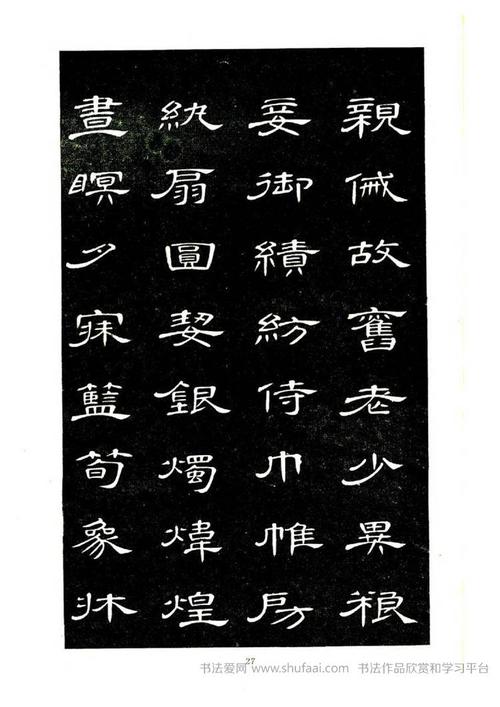 親戚故舊老少異粮
妾御績紡侍巾帷房
紈扇圓㛃銀燭煒煌
晝瞑夕寐籃筍象牀
27
书法爱网 www.shufaai.com 书法作品欣赏和学习平台